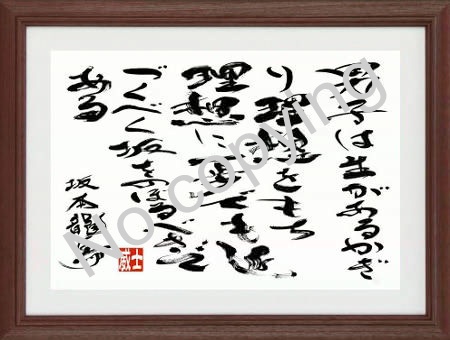 男子は生があるかぎ
り理想をもち
理想に一歩でも近
づくべく坂をのぼるべきで
ある
坂本龍馬
No copying